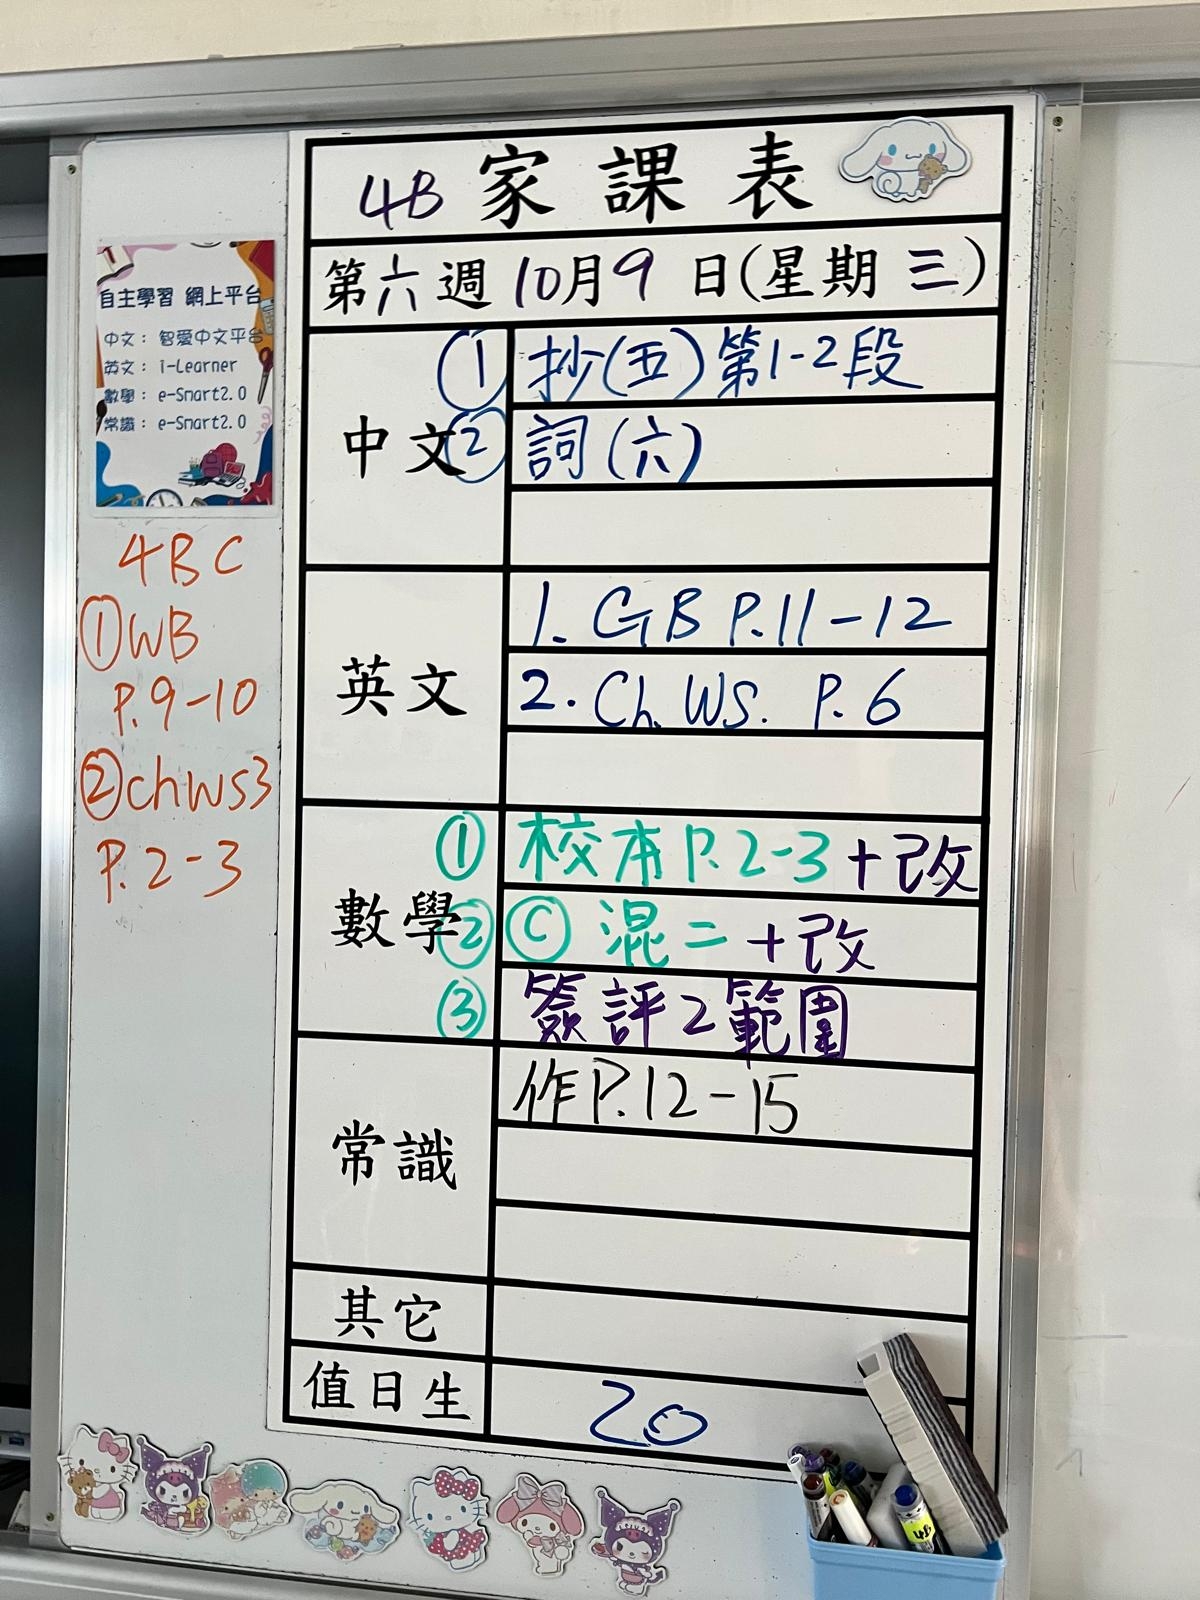 4B 家課表
第六週 10月9日(星期三)
中文
① 抄(五)第1-2段
② 詞(六)
英文
1. GB P.11-12
2. Ch. WS. P.6
數學
① 校本P.2-3+改
② Ⓒ 混二+改
③ 簽評2範圍
常識
作P.12-15
其它
值日生
20
自主學習 網上平台
中文: 智愛中文平台
英文: i-Learner
數學: e-Smart2.0
常識: e-Smart2.0
4BC
①WB
P.9-10
②chws3
P.2-3
4B